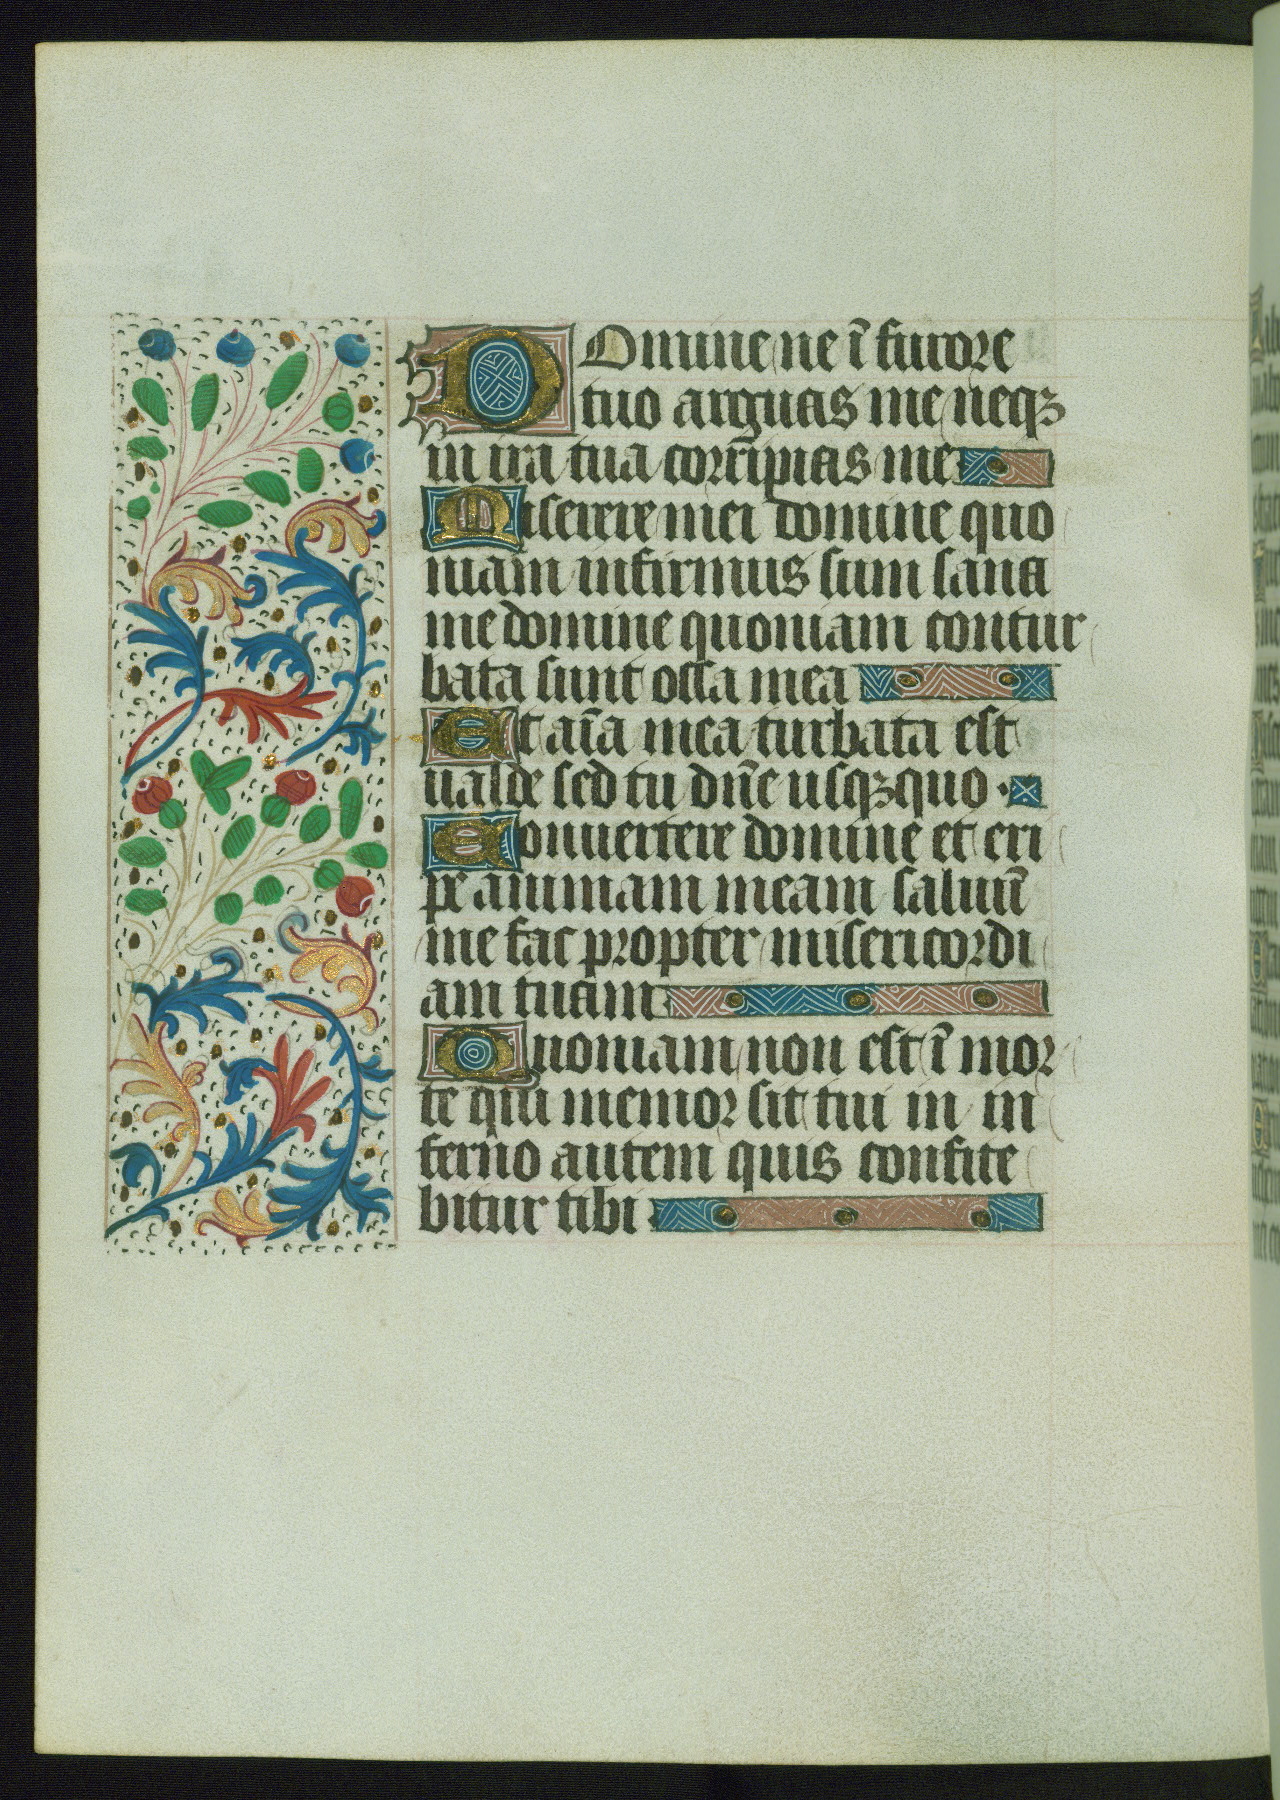 Domine ne ī furore
tuo arguas me neqꝫ
in ira tua corripias me
Miserere mei domine quo
niam infirmus sum sana
me domine quoniam contur
bata sunt ossa mea
Et aīa mea turbata est
ualde sed tu dn̄e usqꝫquo ·
Conuertere domine et eri
pe animam meam saluū
me fac propter misericordi
am tuam
Quoniam non est ī mor
te qui memor sit tui in in
ferno autem quis confite
bitur tibi